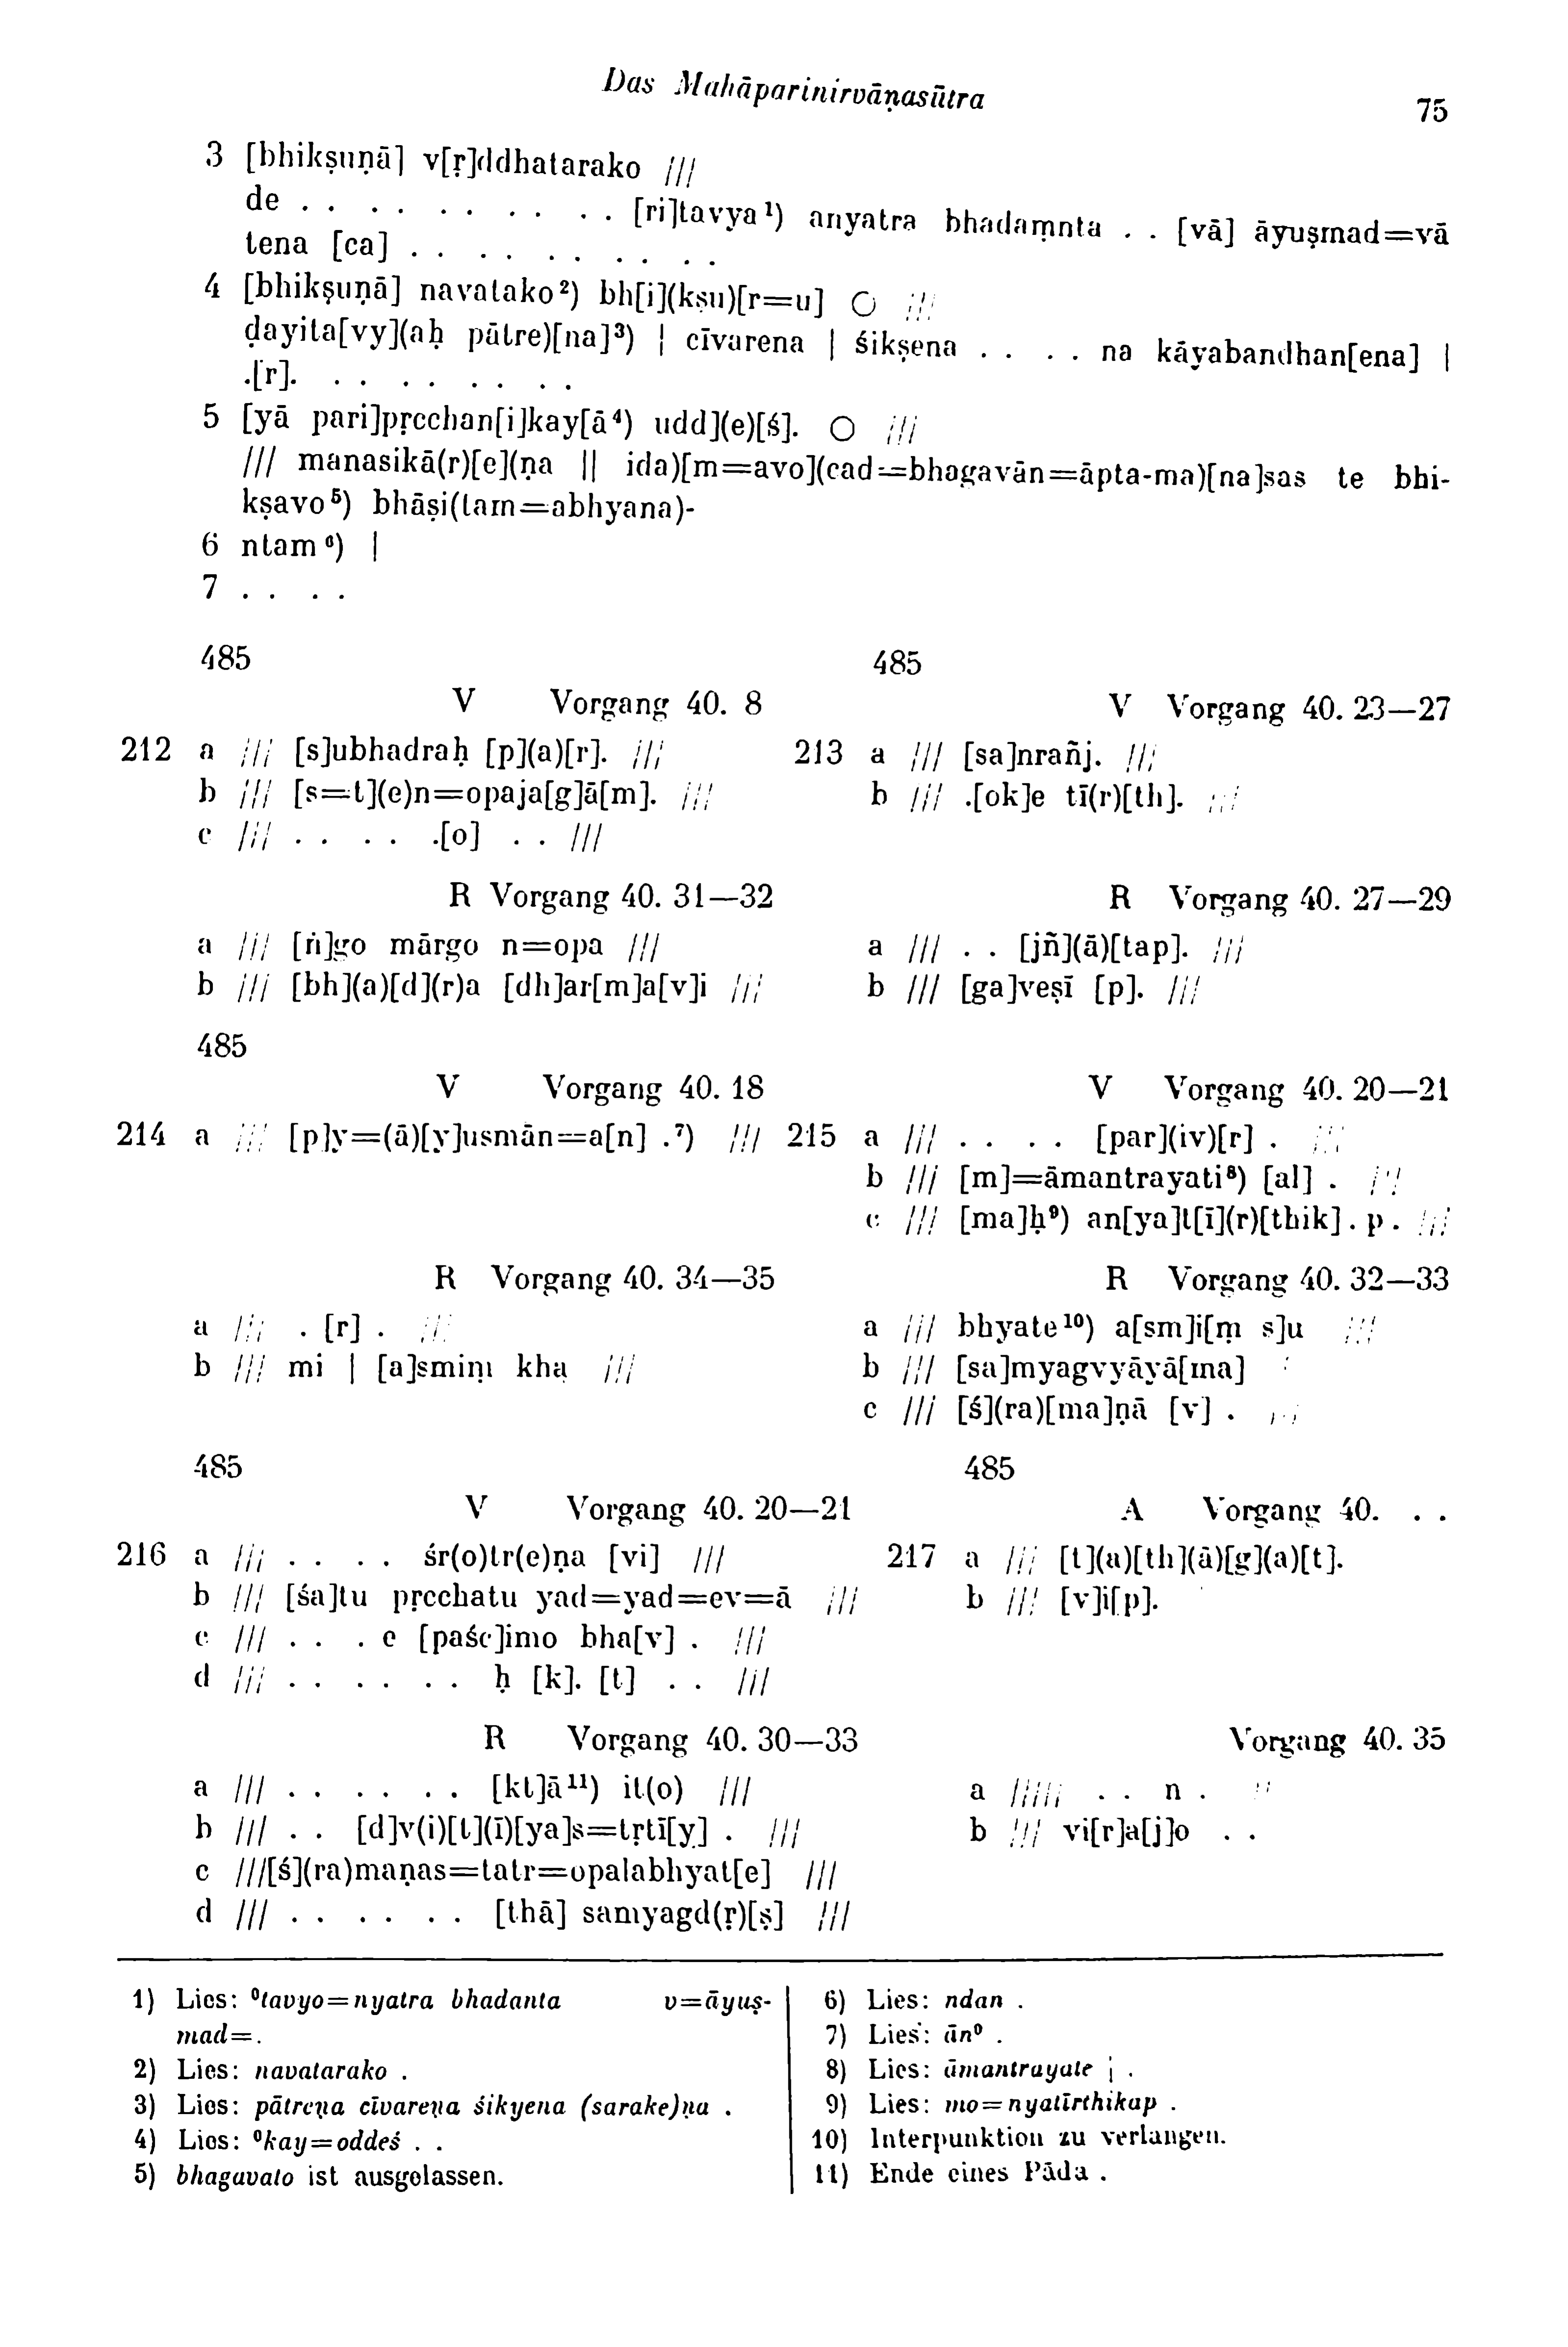 Das Mahāparinirvāṇasūtra
75
3 [bhikṣuṇā] v[ṛ]ddhatarako ///
de . . . . . . . . . . [ri]tavya¹) anyatra bhadaṃnta . . [vā] āyuṣmad=vā
tena [ca] . . . . . . . . . .
4 [bhikṣuṇā] navatako²) bh[i](kṣu)[r=u] ○ ///
ḍayita[vy](aḥ pātre)[na]³) | cīvarena | śikṣena . . . . na kāyabandhan[ena] |
.[r]. . . . . . . . .
5 [yā pari]pṛcchan[i]kay[ā⁴) udd](e)[ś]. ○ ///
/// manasikā(r)[e](ṇa || ida)[m=avo](cad=bhagavān=āpta-ma)[na]sas te bhi-
kṣavo⁵) bhāṣi(tam=abhyana)-
6 ntam⁶) |
7 . . . .
485
V Vorgang 40. 8
212 a /// [s]ubhadraḥ [p](a)[r]. ///
b /// [s=t](e)n=opaja[g]ā[m]. ///
c /// . . . . .[o] . . ///
R Vorgang 40. 31—32
a /// [ṅ]go mārgo n=opa ///
b /// [bh](a)[d](r)a [dh]ar[m]a[v]i ///
485
V Vorgang 40. 23—27
213 a /// [sa]nrañj. ///
b /// .[ok]e tī(r)[th]. ///
R Vorgang 40. 27—29
a /// . . [jñ](ā)[tap]. ///
b /// [ga]veṣī [p]. ///
485
V Vorgang 40. 18
214 a /// [p]y=(ā)[y]usmān=a[n] .⁷) ///
R Vorgang 40. 34—35
a /// . [r] . ///
b /// mi | [a]smiṃ kha ///
V Vorgang 40. 20—21
215 a /// . . . . [par](iv)[r] . ///
b /// [m]=āmantrayati⁸) [al] . ///
c /// [ma]ḥ⁹) an[ya]t[ī](r)[thik] . p . ///
R Vorgang 40. 32—33
a /// bhyate¹⁰) a[sm]i[ṃ s]u ///
b /// [sa]myagvyāyā[ma]
c /// [ś](ra)[ma]ṇā [v] . ///
485
V Vorgang 40. 20—21
216 a /// . . . . śr(o)tr(e)ṇa [vi] ///
b /// [śa]tu pṛcchatu yad=yad=ev=ā ///
c /// . . . e [paśc]imo bha[v] . ///
d /// . . . . . . ḥ [k]. [t] . . ///
R Vorgang 40. 30—33
a /// . . . . . . [kt]ā¹¹) it(o) ///
b /// . . [d]v(i)[t](ī)[ya]s=tṛtī[y] . ///
c ///[ś](ra)maṇas=tatr=opalabhyat[e] ///
d /// . . . . . . [thā] samyagd(ṛ)[ṣ] ///
485
A Vorgang 40. . .
217 a /// [t](a)[th](ā)[g](a)[t].
b /// [v]i[p].
Vorgang 40. 35
a ///// . . n .
b /// vi[r]a[j]o . .
1) Lies: ⁰tavyo=nyatra bhadanta v=āyuṣ-
mad=.
2) Lies: navatarako .
3) Lies: pātreṇa cīvareṇa śikyena (sarake)ṇa .
4) Lies: ⁰kay=oddeś . .
5) bhagavato ist ausgelassen.
6) Lies: ndan .
7) Lies: ān⁰ .
8) Lies: āmantrayate | .
9) Lies: mo=nyatīrthikap .
10) Interpunktion zu verlangen.
11) Ende eines Pāda .